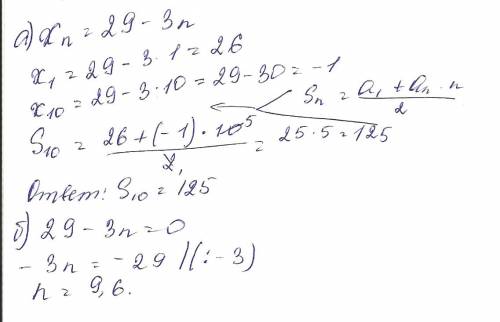 а) xn = 29 - 3n
x1 = 29 - 3 · 1 = 26
x10 = 29 - 3 · 10 = 29 - 30 = -1
Sn = a1 + an · n / 2
S10 = 26 + (-1) · 10 5 / 2, = 25 · 5 = 125
Ответ: S10 = 125
б) 29 - 3n = 0
- 3n = - 29 | (: - 3)
n = 9,6.